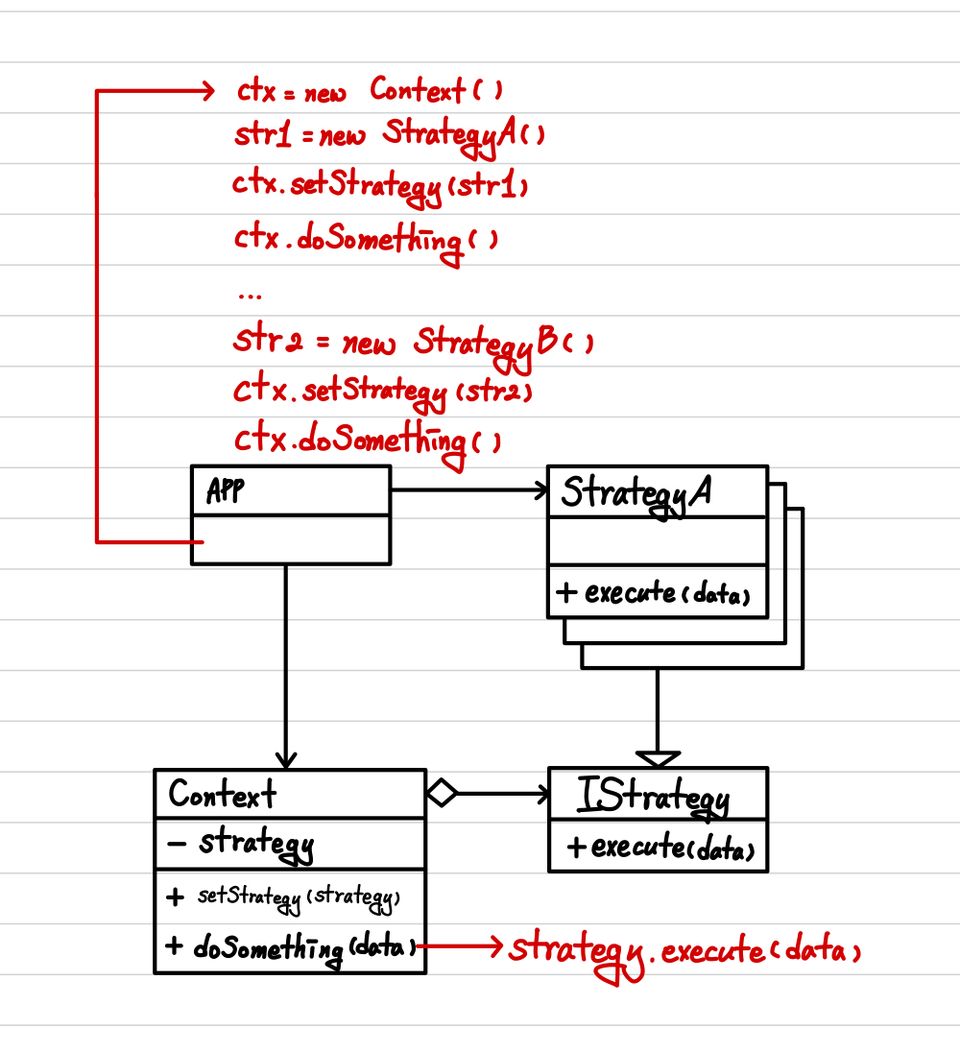 ctx = new Context()
str1 = new StrategyA()
ctx.setStrategy(str1)
ctx.doSomething()
...
str2 = new StrategyB()
ctx.setStrategy(str2)
ctx.doSomething()
APP
StrategyA
+ execute(data)
Context
- strategy
+ setStrategy(strategy)
+ doSomething(data)
IStrategy
+ execute(data)
strategy.execute(data)